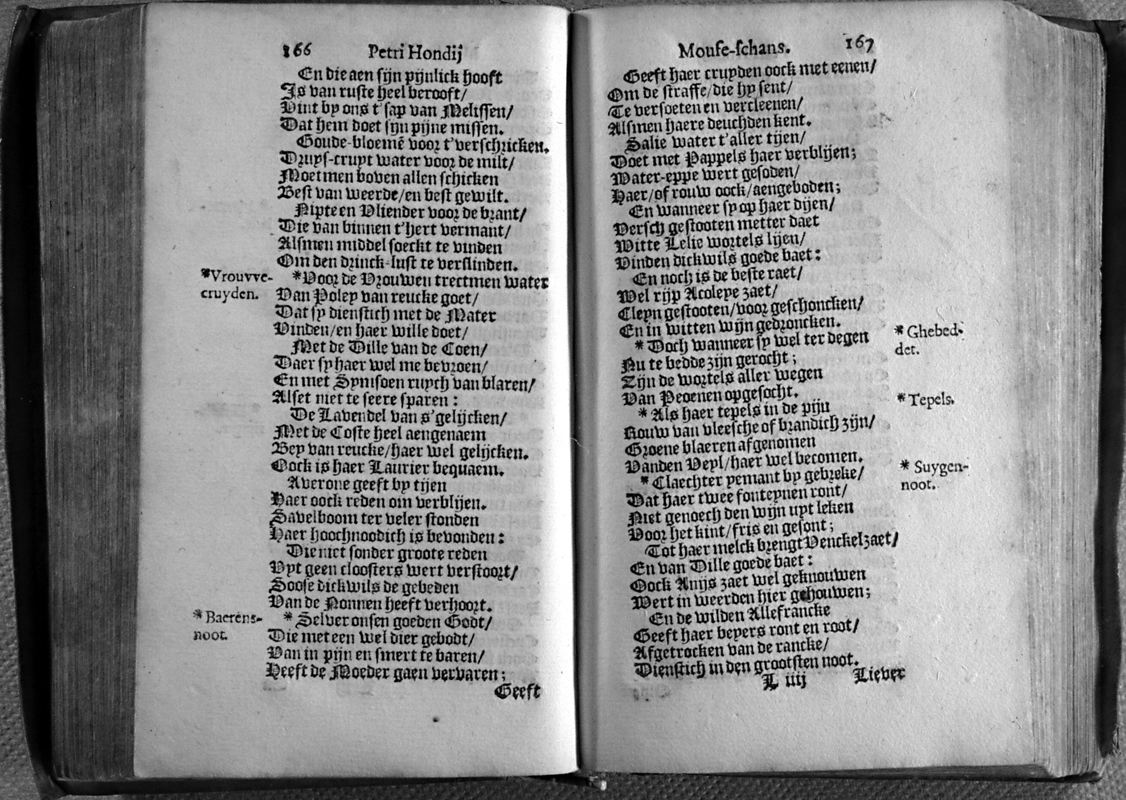 166 Petri Hondij
En die aen sijn pijnlick hooft
Is van ruste heel berooft/
Vint by ons t'sap van Melissen/
Dat hem doet sijn pijne missen.
Goude-bloemē voor t'verschricken.
Druys-cruyt water voor de milt/
Moetmen boven allen schicken
Best van weerde/en best gewilt.
Nipte en Vliender voor de brant/
Die van binnen t'hert vermant/
Alsmen middel soeckt te vinden
Om den drinck-lust te verslinden.
*Vrouvve-cruyden.
*Voor de Vrouwen trectmen water
Van Poley van reucke goet/
Dat sy dienstich met de Mater
Vinden/en haer wille doet/
Met de Dille van de Coen/
Daer sy haer wel me bevroen/
En met Symsoen ruych van blaren/
Alset niet te seere sparen:
De Lavendel van s'gelijcken/
Met de Coste heel aengenaem
Bey van reucke/haer wel gelijcken.
Oock is haer Laurier bequaem.
Averone geeft by tijen
Haer oock reden om verblijen.
Savelboom ter veler stonden
Haer hoochnoodich is bevonden:
Die niet sonder groote reden
Uyt geen cloosters wert verstoort/
Soose dickwils de gebeden
Van de Nonnen heeft verhoort.
*Baerens-noot.
*Selver onsen goeden Godt/
Die met een wel dier gebodt/
Van in pijn en smert te baren/
Heeft de Moeder gaen vervaren;
Geeft
Mouse-schans. 167
Geeft haer cruyden oock met eenen/
Om de straffe/die hy sent/
Te versoeten en vercleenen/
Alsmen haere deuchden kent.
Salie water t'aller tijen/
Doet met Pappels haer verblijen;
Water-eppe wert gesoden/
Haer/of rouw oock/aengeboden;
En wanneer sy op haer dijen/
Versch gestooten metter daet
Witte Lelie wortels lijen/
Vinden dickwils goede baet:
En noch is de beste raet/
Wel rijp Acoleye zaet/
Cleyn gestooten/voor geschoncken/
En in witten wijn gedroncken.
*Ghebed-det.
*Doch wanneer sy wel ter degen
Nu te bedde zijn gerocht;
Zijn de wortels aller wegen
Van Peoenen opgesocht.
*Tepels.
*Als haer tepels in de pijn
Rouw van vleesche of brandich zijn/
Groene blaeren afgenomen
Vanden Veyl/haer wel becomen.
*Suygen-noot.
*Claechter yemant by gebreke/
Dat haer twee fonteynen ront/
Niet genoech den wijn uyt leken
Voor het kint/fris en gesont;
Tot haer melck brengt Venckel zaet/
En van Dille goede baet:
Oock Anijs zaet wel geknouwen
Wert in weerden hier gehouwen;
En de wilden Allefrancke
Geeft haer beyers ront en root/
Afgetrocken van de rancke/
Dienstich in den grootsten noot.
L iiij Liever